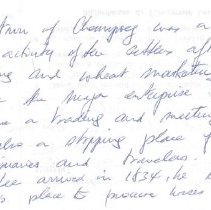 town of Champoeg was a
activity of the settlers aft
ing and wheat marketin
the major enterprise
a trading and meeting
also a stopping place f
inaries and travelers.
lee arrived in 1834, he
place to procure horses